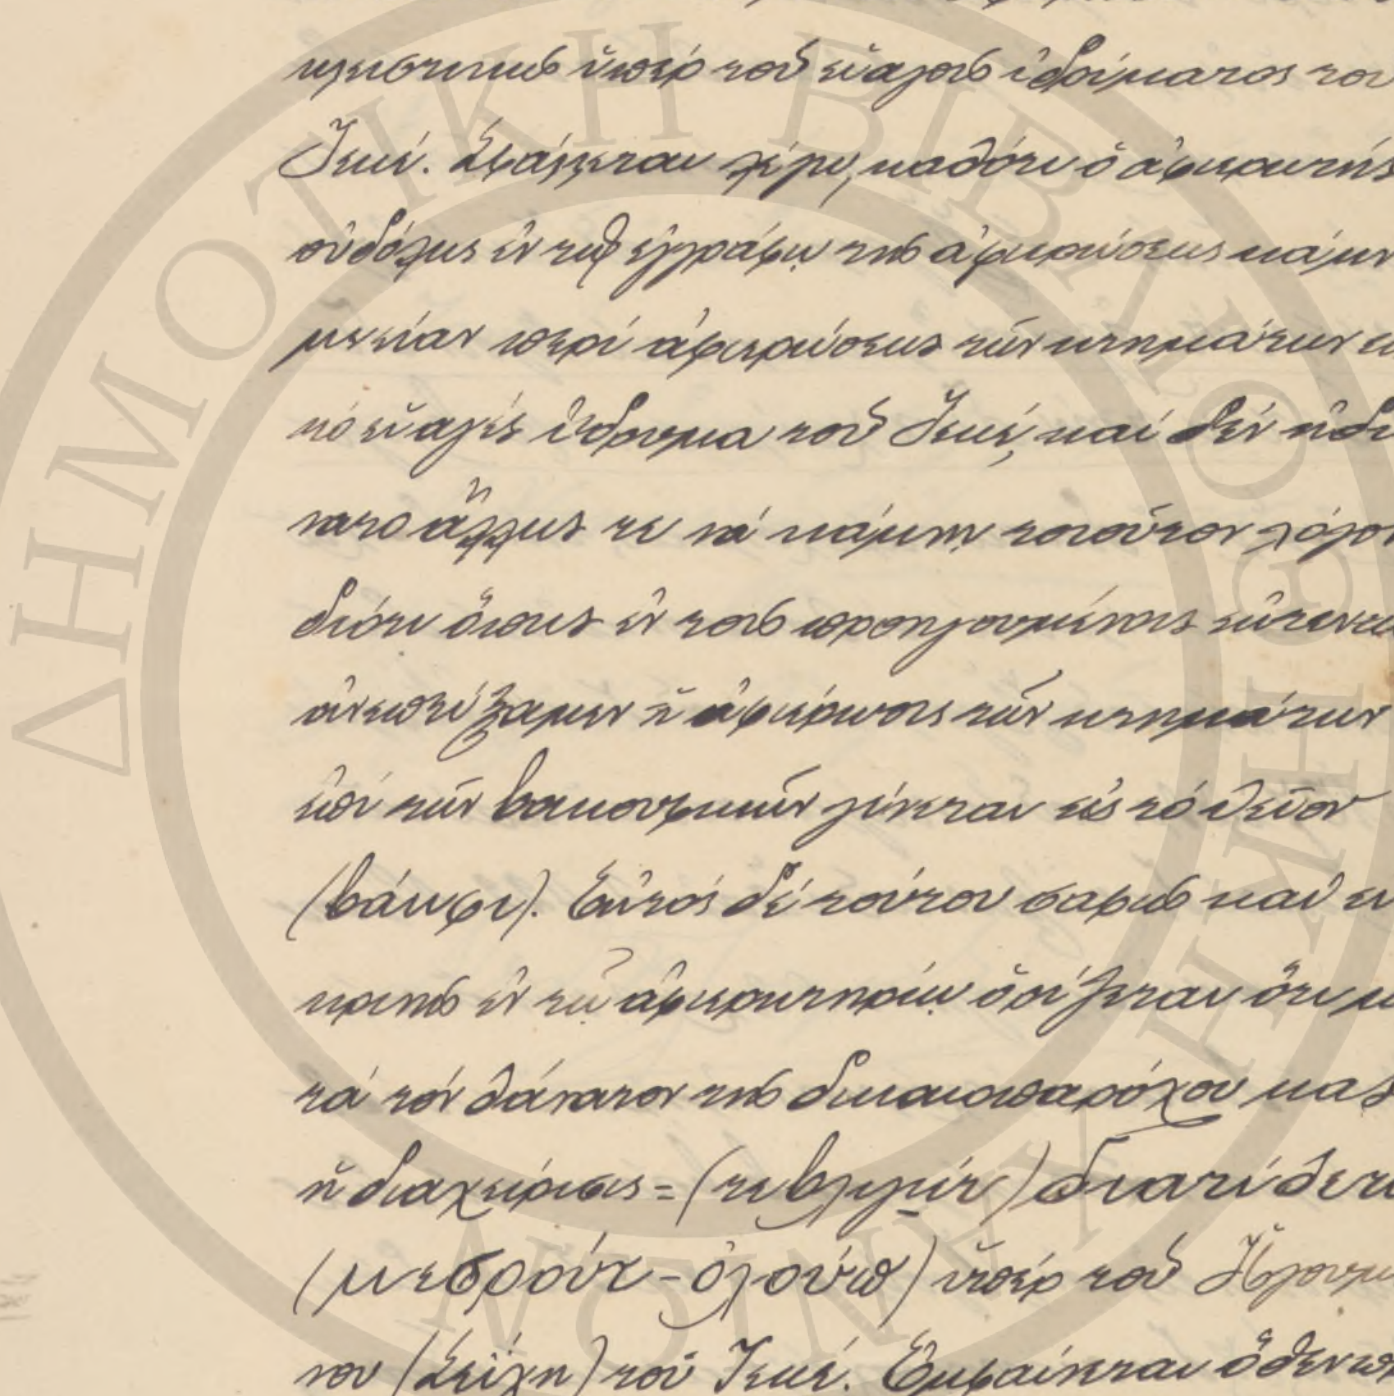 κλειστικῶς ὑπὲρ τοῦ εὐαγοῦς ἱδρύματος του
Τεκέ. Σφάλλεται λέγω, καθότι ὁ ἀφιερωτής
οὐδόλως ἐν τῷ ἐγγράφῳ τῆς ἀφιερώσεως κάμν
μνείαν περὶ ἀφιερώσεως τῶν κτημάτων
τὸ εὐαγές ἵδρυμα τοῦ Τεκέ, καί δέν ἠδύ
νατο ἄλλως τε νά κάμῃ τοιοῦτον λόγον
διότι ὅπως ἐν τοῖς προηγουμένοις
ἀνεπτύξαμεν ἡ ἀφιέρωσις τῶν κτημάτων
ἐπί τῶν βακουφικῶν γίνεται εἰς τό θεῖον
(βάκφι). Ἐκτός δέ τούτου σαφῶς καί εὐ
κρινῶς ἐν τῷ ἀφιερωτηρίῳ ὁρίζεται ὅτι με
τά τόν θάνατον τῆς δικαιοπαρόχου μας
ἡ διαχείρισις = (τεβλιγέτ) διατίθετα
(μεσρούτ-ὀλούπ) ὑπέρ τοῦ Ἡγουμέ
νου (Σεΐχη) τοῦ Τεκέ. Ἐμφαίνεται ὅθεν
ΔΗΜΟΤΙΚΗ ΒΙΒΛΙΟΘΗΚΗ ΧΑΝΙΩΝ